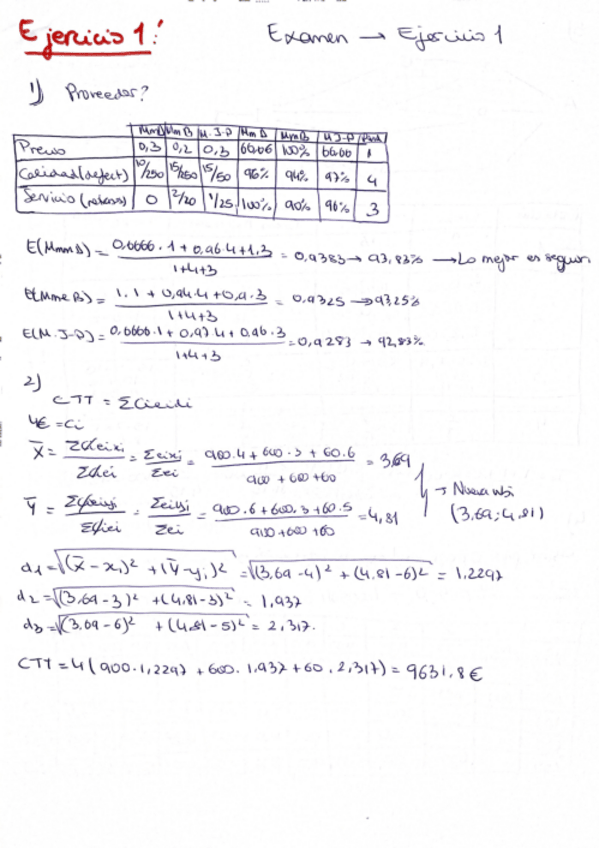 Ejercicio 1:
Examen → Ejercicio 1
1) Proveedor?
MmΔ MmB M.J-P MmΔ MmB M.J-P Pond
Precio 0,3 0,2 0,3 66,66 100% 66,66 1
Calidad (defect) 10/250 15/250 15/50 96% 94% 97% 4
Servicio (retrasos) 0 2/20 1/25 100% 90% 96% 3
E(MmmΔ) = (0,6666·1 + 0,96·4 + 1·3)/(1+4+3) = 0,9383 → 93,83% → Lo mejor es seguir
E(Mme B) = (1·1 + 0,94·4 + 0,9·3)/(1+4+3) = 0,9325 → 93,25%
E(M.J-P) = (0,6666·1 + 0,97·4 + 0,96·3)/(1+4+3) = 0,9283 → 92,83%
2)
CTT = Σcieidi
4€ = ci
X̄ = Σcieixi/Σciei = Σeixi/Σei = (900·4 + 600·3 + 60·6)/(900+600+60) = 3,69
→ Nueva ubi
(3,69; 4,81)
Ȳ = Σcieiyi/Σciei = Σeiyi/Σei = (900·6 + 600·3 + 60·5)/(900+600+60) = 4,81
d1 = √((X̄ - xi)² + (Ȳ - yi)²) = √((3,69-4)² + (4,81-6)²) = 1,2297
d2 = √((3,69-3)² + (4,81-3)²) = 1,937
d3 = √((3,69-6)² + (4,81-5)²) = 2,317.
CTT = 4(900·1,2297 + 600·1,937 + 60·2,317) = 9631,8€